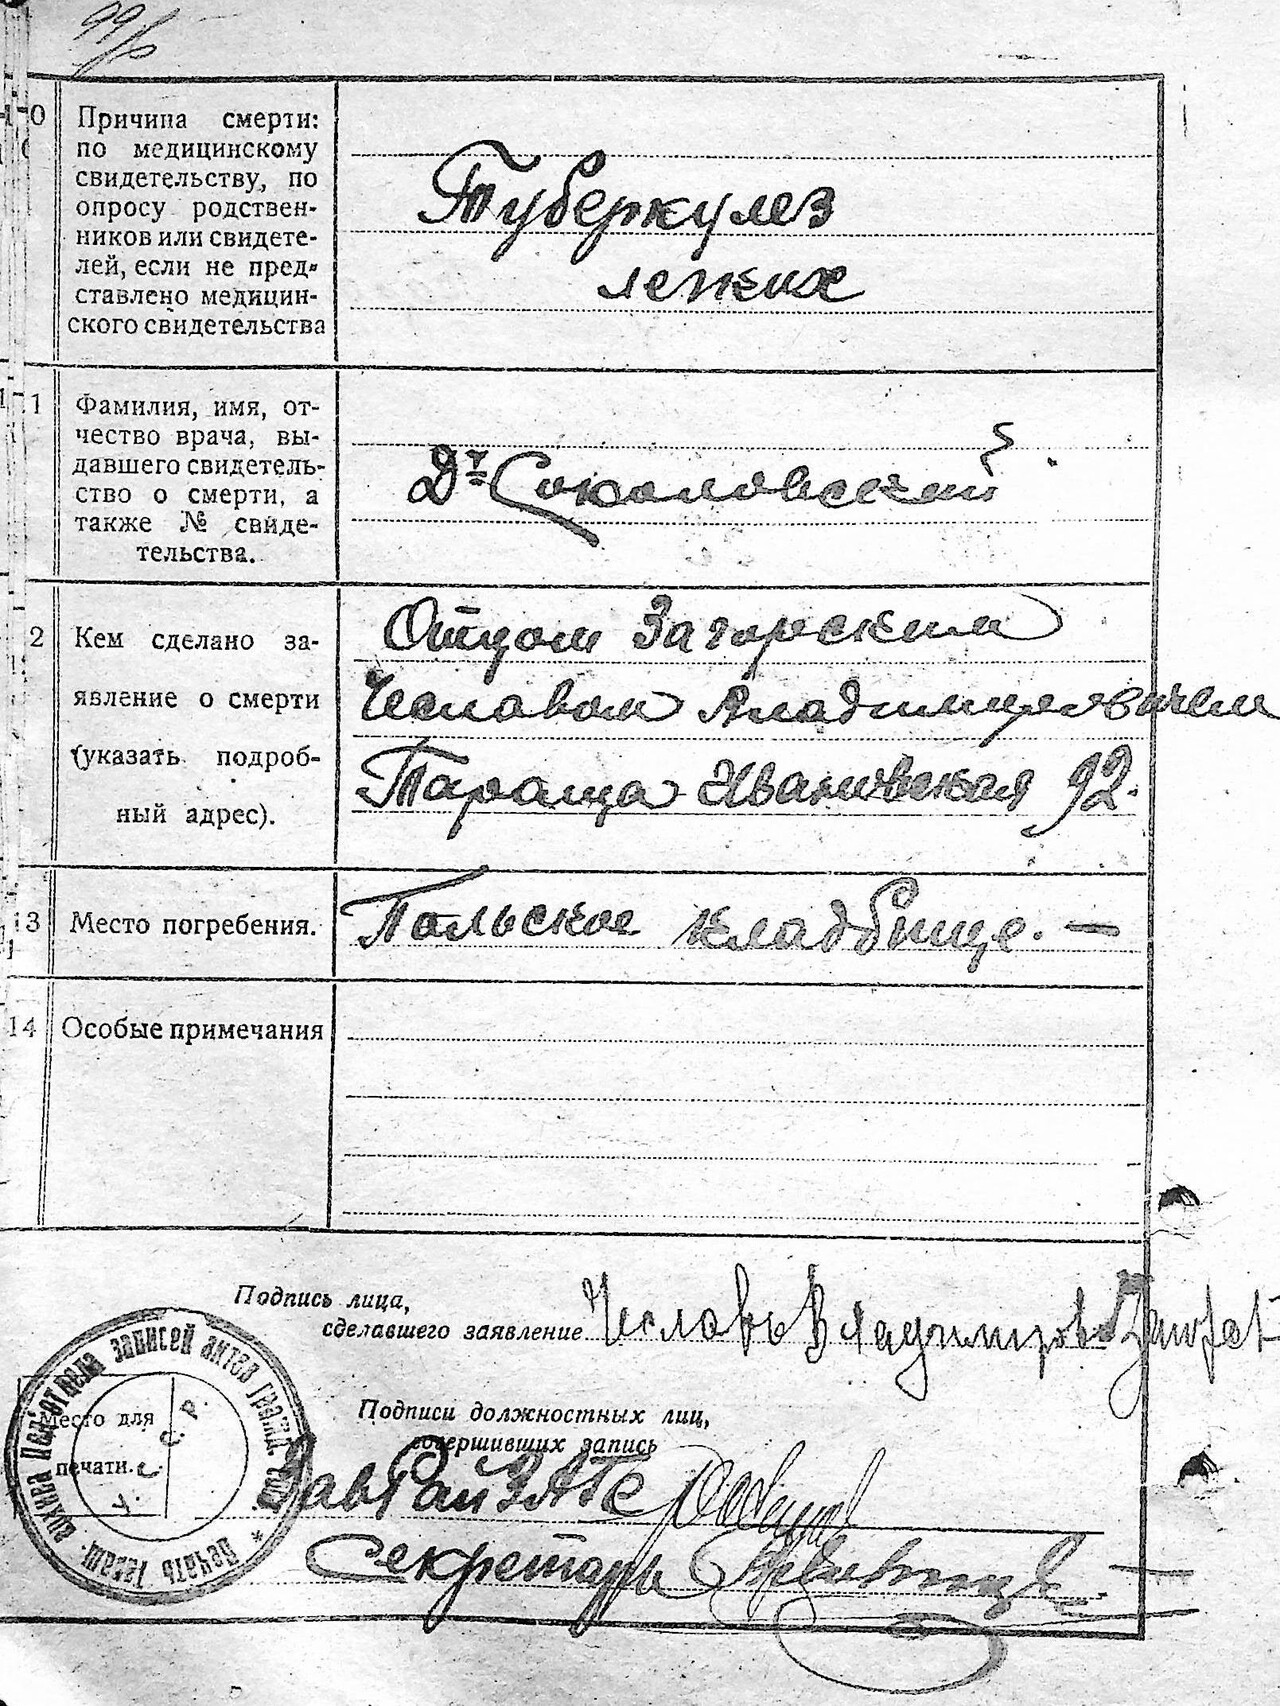 99/б
10 Причина смерти:
по медицинскому
свидетельству, по
опросу родствен-
ников или свидете-
лей, если не пред-
ставлено медицин-
ского свидетельства
Туберкулез
легких
11 Фамилия, имя, от-
чество врача, вы-
давшего свидетель-
ство о смерти, а
также № свиде-
тельства.
Д-т Соколовский
12 Кем сделано за-
явление о смерти
(указать подроб-
ный адрес).
Отцом Загорским
Чеславом Владимировичем
Тараща Ивановская 92.
13 Место погребения.
Польское кладбище. —
14 Особые примечания
Подпись лица,
сделавшего заявление Чеславъ Владимиров
Подписи должностных лиц,
совершивших запись
Место для
печати.
У. С. С. Р.
ЗавРайЗАГС
Секретарь